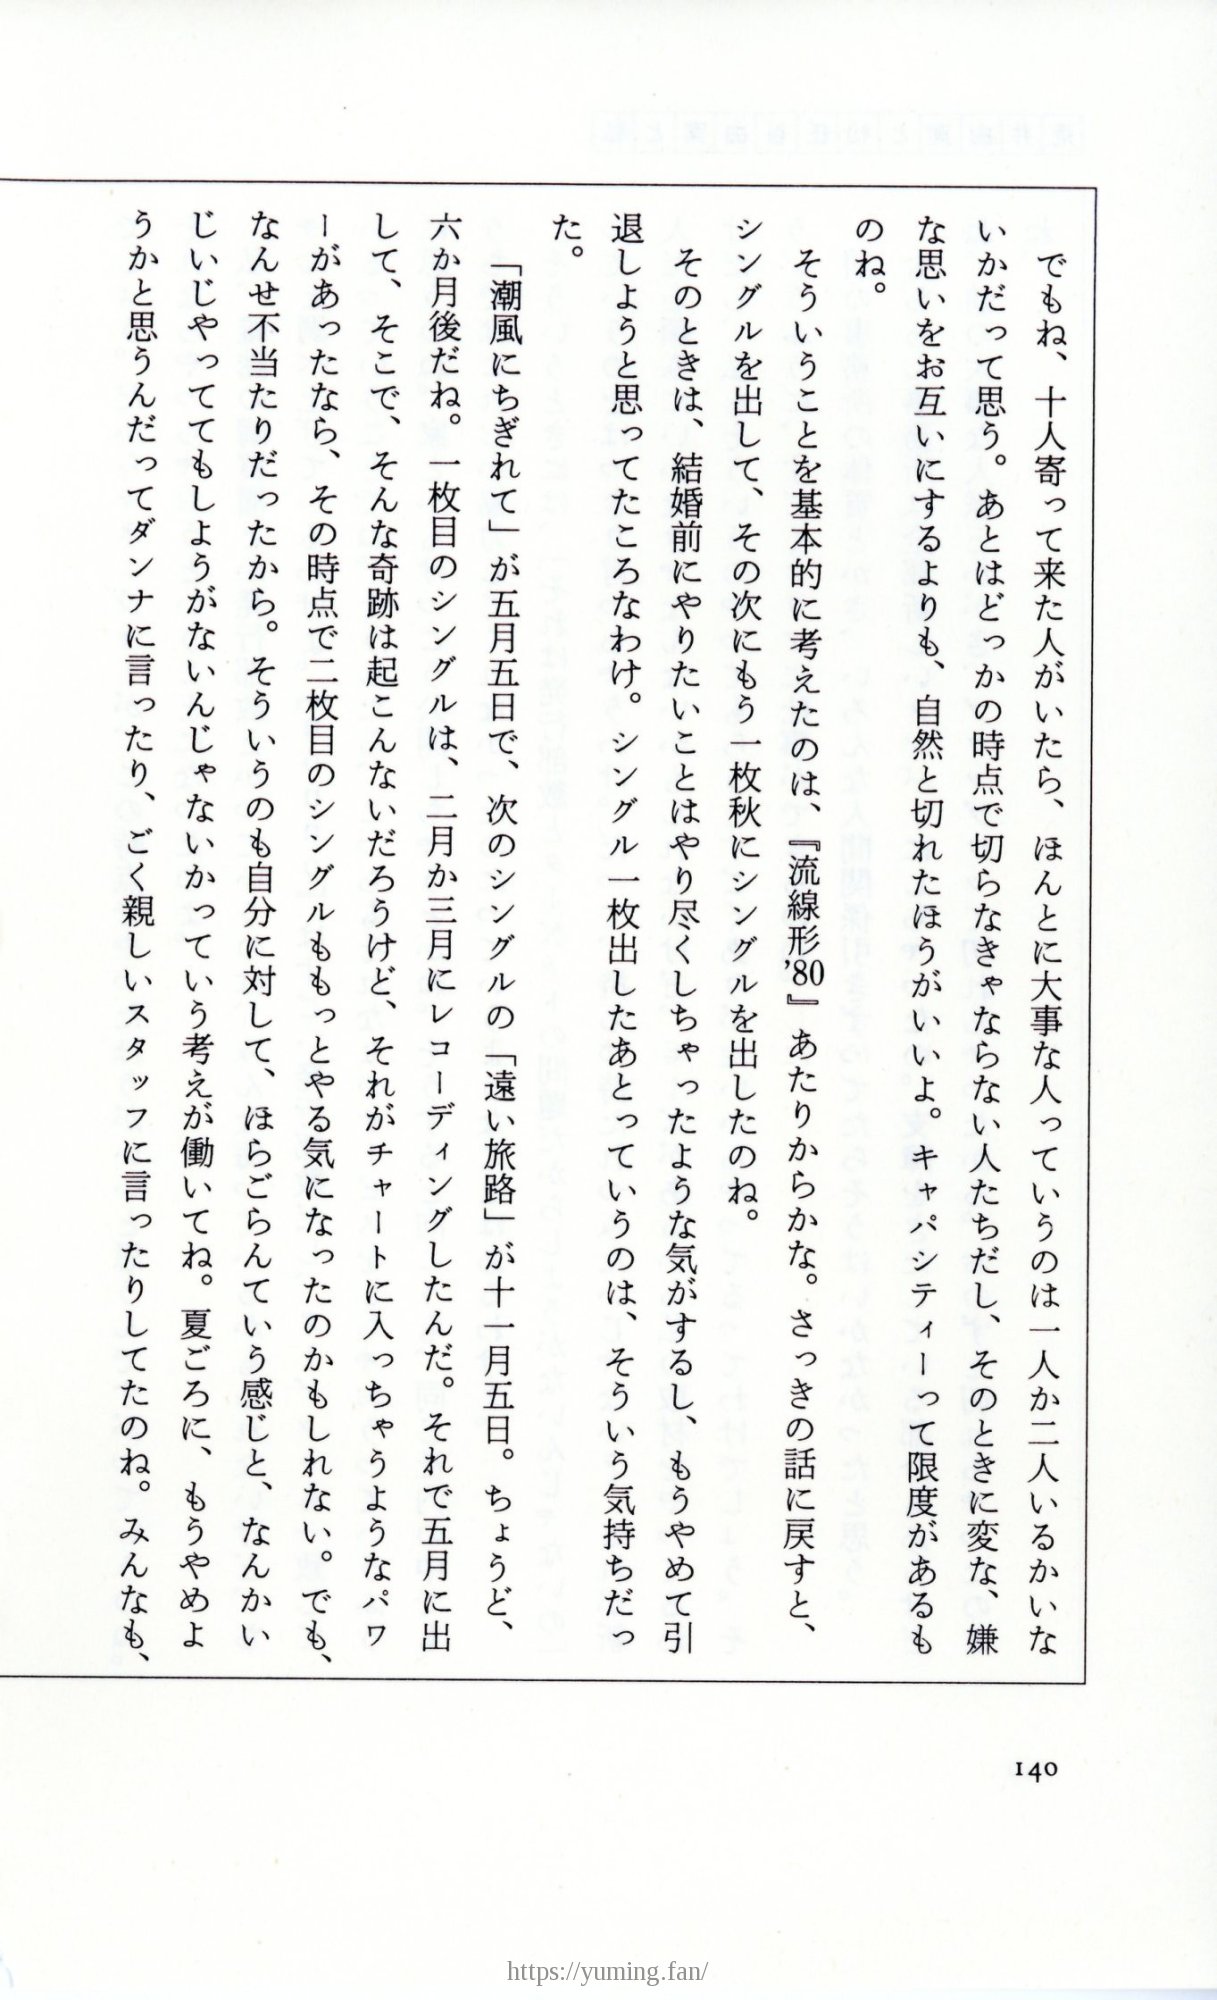 でもね、十人寄って来た人がいたら、ほんとに大事な人っていうのは一人か二人いるかいな
いかだって思う。あとはどっかの時点で切らなきゃならない人たちだし、そのときに変な、嫌
な思いをお互いにするよりも、自然と切れたほうがいいよ。キャパシティーって限度があるも
のね。
そういうことを基本的に考えたのは、『流線形'80』あたりからかな。さっきの話に戻すと、
シングルを出して、その次にもう一枚秋にシングルを出したのね。
そのときは、結婚前にやりたいことはやり尽くしちゃったような気がするし、もうやめて引
退しようと思ってたころなわけ。シングル一枚出したあとっていうのは、そういう気持ちだっ
た。
「潮風にちぎれて」が五月五日で、次のシングルの「遠い旅路」が十一月五日。ちょうど、
六か月後だね。一枚目のシングルは、二月か三月にレコーディングしたんだ。それで五月に出
して、そこで、そんな奇跡は起こんないだろうけど、それがチャートに入っちゃうようなパワ
ーがあったなら、その時点で二枚目のシングルももっとやる気になったのかもしれない。でも、
なんせ不当たりだったから。そういうのも自分に対して、ほらごらんていう感じと、なんかい
じいじやっててもしようがないんじゃないかっていう考えが働いてね。夏ごろに、もうやめよ
うかと思うんだってダンナに言ったり、ごく親しいスタッフに言ったりしてたのね。みんなも、
140
https://yuming.fan/